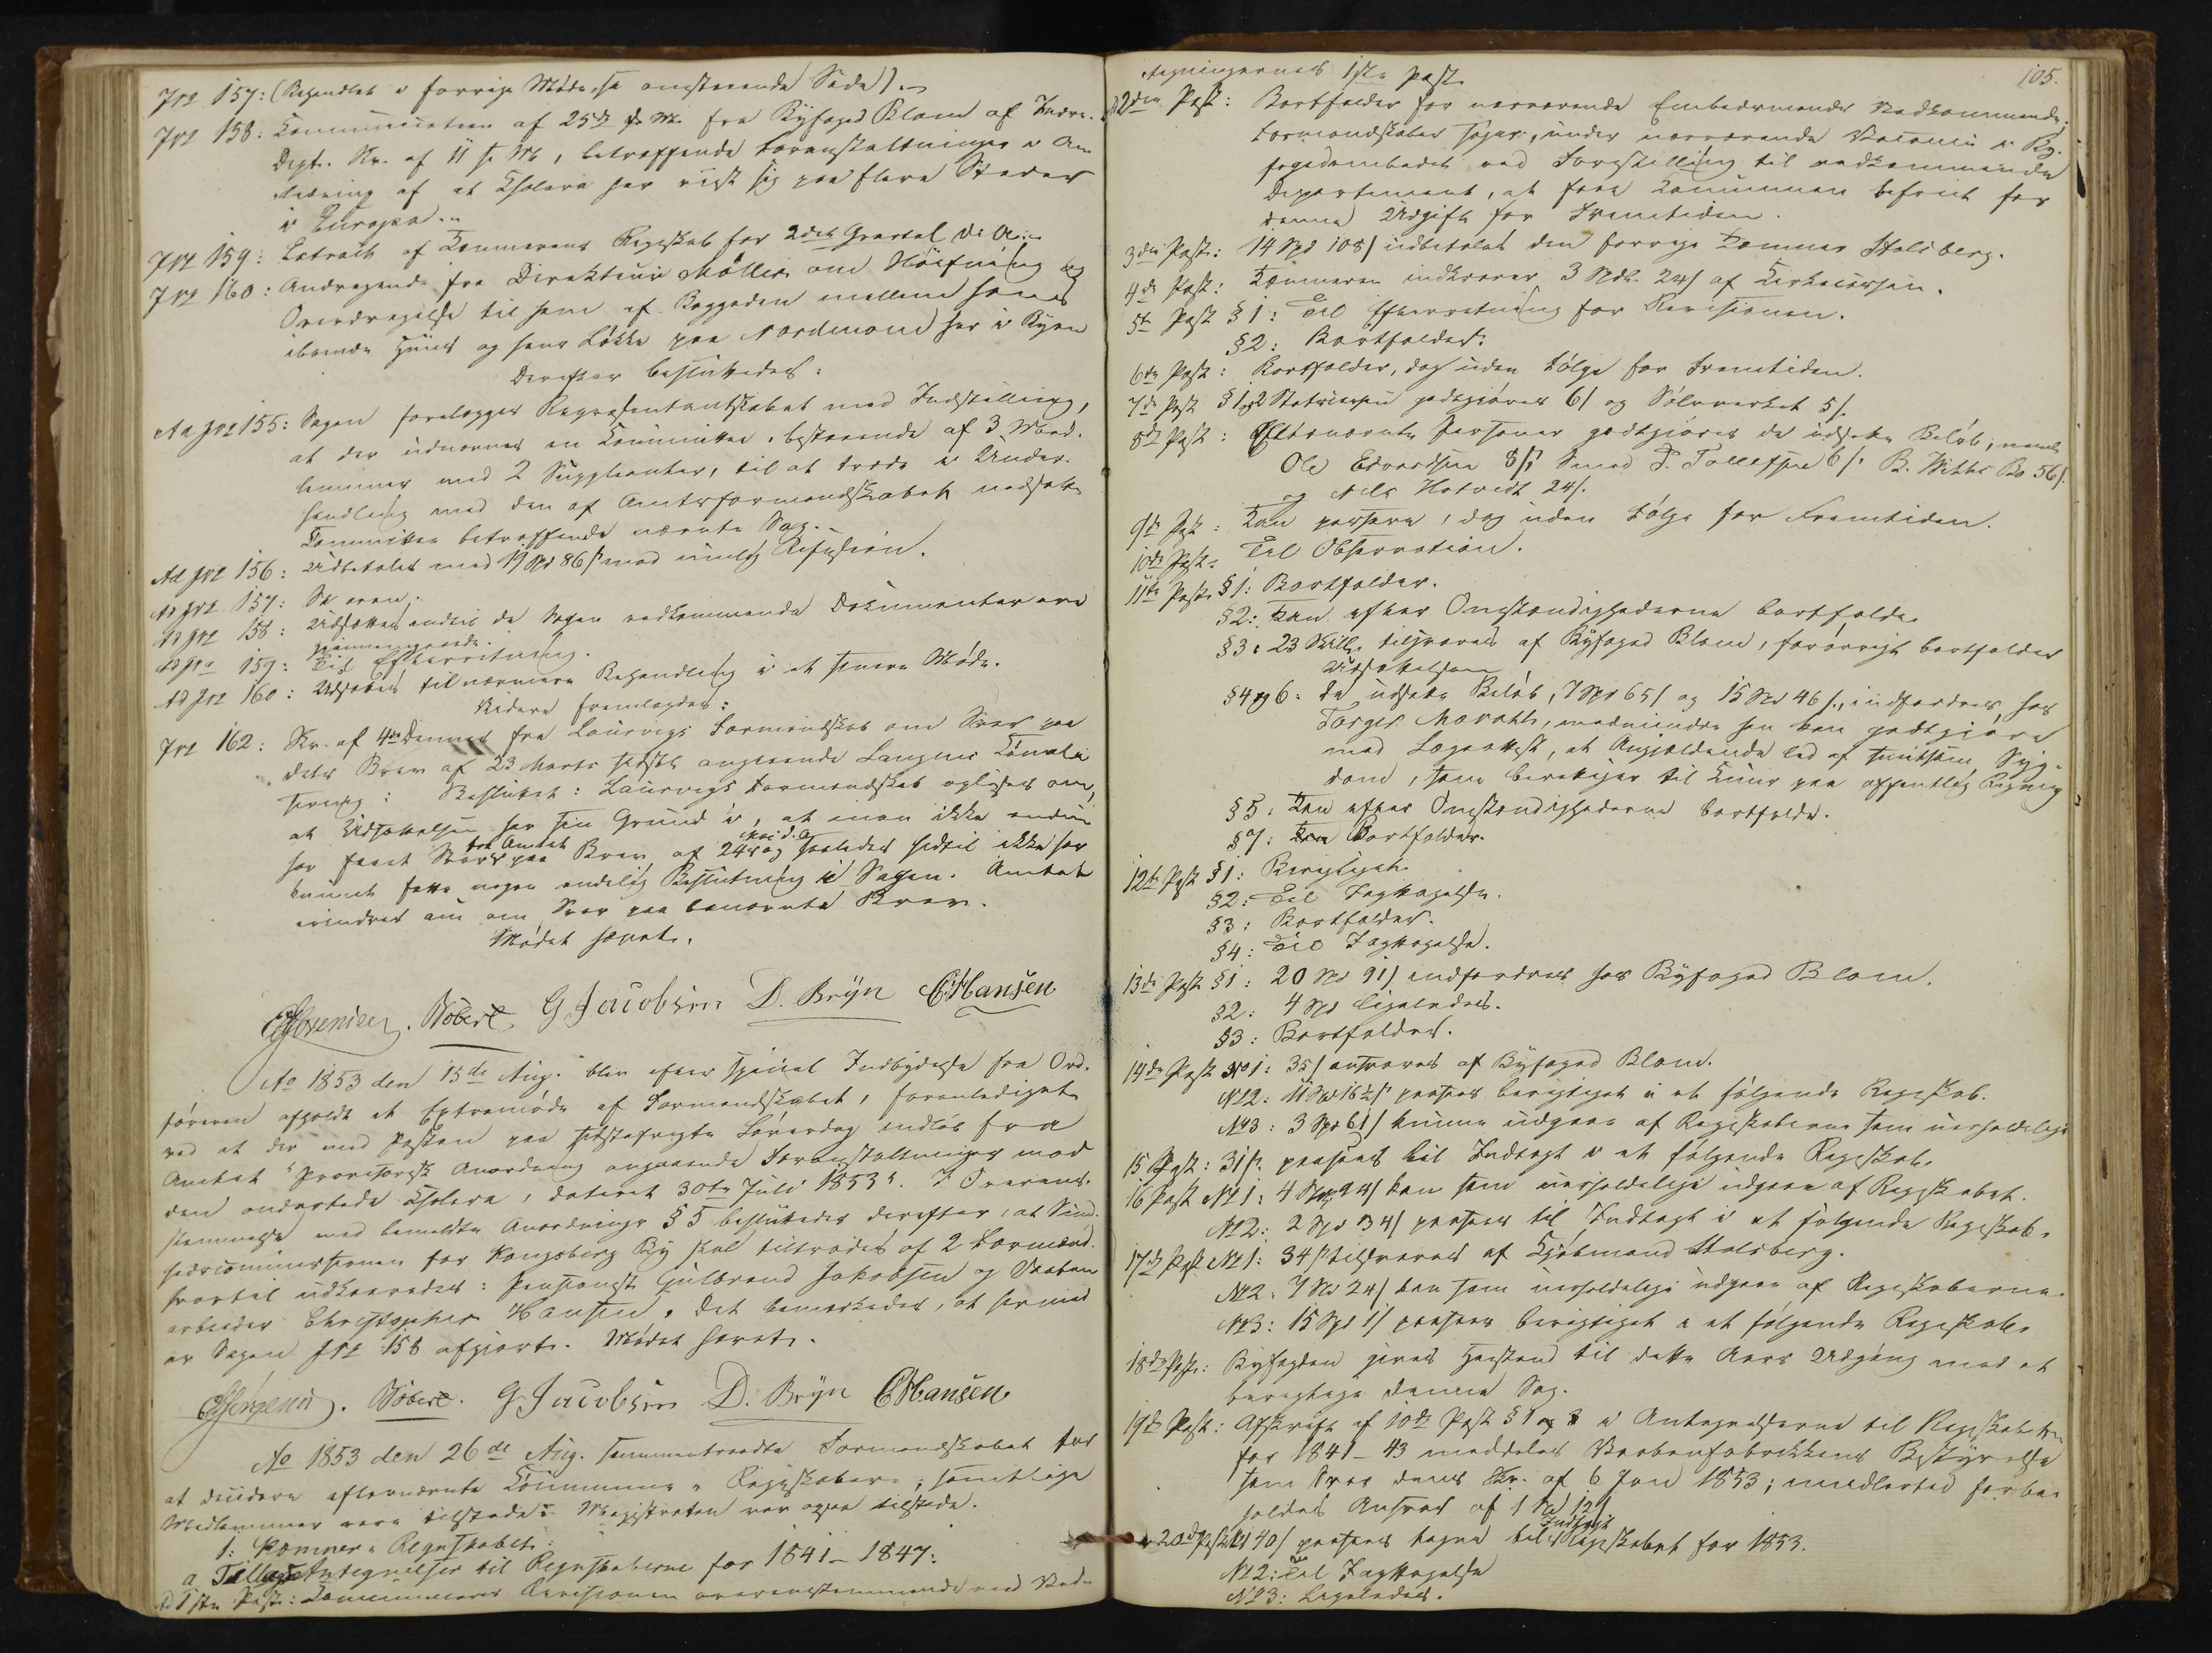 Jr№ 157: (Behandlet i forrige Møde, se omstaaende Side).
Jr№ 158: Communication af 25de f. M. fra Byfoged Blom af Indre-
Dept. Skr. af 11 s. M., betræffende Foranstaltninger i An-
ledning af at Cholera har viist sig paa flere Steder
i Europa.
Jr№ 159: Extract af Kæmnerens Regnskab for 2det Qvartal d. A.
Jr№ 160: Andragende fra Direkteur Møller om og
Overdragelse til ham af Baggaden mellem hans
iboende Huus og hans Løkke paa Nordmoen her i Byen
Derefter besluttedes:
Ad Jr№ 155: Sagen forelægges Repræsentantskabet med Indstilling,
at der udnævnes en Committee, bestaaende af 3 Med-
lemmer med 2 Suppleanter, til at træde i Under-
handling med den af Amtsformandskabet nedsatte
Committee betræffende nævnte Sag.
Ad Jr№ 156: Udbetales med 19 Spd 86 s. mod mulig Refusion.
Ad Jr№ 157: Se oven.
Ad Jr№ 158: Udsættes indtil de Sagen vedkommende Documenter ere
gjennemgaaede.
Ad Jr№ 159: Til Efterretning.
Ad Jr№ 160: Udsættes til nærmere Behandling i et senere Møde.
Videre fremlagdes:
Jr№ 162: Skr. af 4de Dennes fra Laurvigs Formandskab om Svar paa
dets Brev af 23 Marts sidstl. angaaende Laugens Canali-
sering: Besluttet: Laurvigs Formandskab oplyses om,
at Udsættelsen har sin Grund i, at man ikke endnu
har faaet Svar fra Amtet paa Brev af 24 Mai d. A. og saaledes hidtil ikke har
kunnet fatte nogen endelig Beslutning i Sagen. Amtet
erindres nu om Svar paa benævnte Brev.
Mødet hævet.
Robert G Jacobsen D. Bryn C Hansen
Ao 1853 den 15de Aug. blev efter speciel Indbydelse fra Ord-
føreren afholdt et Extramøde af Formandskabet, foranlediget
ved at der med Posten paa sidstafvigte Løverdag indløb fra
Amtet "Provisorisk Anordning angaaende Foranstaltninger mod
den ondartede Cholera, dateret 30te Juli 1853". I Overens-
stemmelse med bemeldte Anordnings § 5 besluttedes derefter, at Sund-
hedscommissionen for Kongsberg By skal tiltrædes af 2 Formænd.
hvortil udkaaredes: Pensionist Gulbrand Jakobsen og
arbeider Christopher Hansen. Det bemærkedes, at hermed
er Sagen Jr№ 158 afgjort. Mødet hævet.
Robert. G Jacobsen D. Bryn C Hansen
Ao 1853 den 26de Aug. sammentraadte Formandskabet for
at decidere efternævnte Commune-Regnskaber; samtlige
Medlemmer vare tilstede. Magistraten var ogsaa tilstede.
1: Kæmner-Regnskabet:
a Tillægs Antegnelser til Regnskaberne for 1841–1847:
Ad 1ste Post: Revisionen overensstemmende med
105.
tegningernes 1ste Post
Ad 2den Post: Bortfalder for nærværende Embedsmænds Vedkommende;
Formandskabet søger, under nærværende Vacance i By-
fogedembedet ved Forestilling til vedkommende
Departement, at faae Communen befriet for
denne Udgift for Fremtiden.
3die Post: 14 Spd 108 s udbetales den forrige Kæmner Stalsberg.
4de Post: Kæmneren indkræver 3 Spd. 24 s af Kirkecassen.
5te Post § 1: Til Efterretning for Revisionen.
§ 2: Bortfalder.
6te Post: Bortfalder, dog uden Følge for Fremtiden.
7de Post § 1 og 2 Statscassen godtgjøres 6 s og Sølvverket 5 s.
8de Post: Efternævnte Personer godtgjøres de udsatte Beløb, neml.
Ole Edvardsen 8 s, Smed P. Tollefsen 6 s, B. Withs Bo 56 s.
og Nils Hotvedt 24 s.
9de Post: Kan passere, dog uden Følge for Fremtiden.
10de Post: Til Observation.
11te Post § 1: Bortfalder.
§ 2: Kan efter Omstændighederne bortfalde.
§ 3: 23 Skill. tilsvares af Byfoged Blom, forøvrigt bortfalder
Udsættelsen
§ 4 og 6: de udsatte Beløb, 7 Spd 65 s og 15 Spd 46 s, indfordres hos
Torger Moratt, medmindre han kan godtgjøre
med Lægeattest, at Angjældende led af smitsom Syg-
dom, som berettiger til Cuur paa offentlig Regning
§ 5: Kan efter Omstændighederne bortfalde.
§ 7: Bortfalder.
12te Post § 1: Berigtiget.
§ 2: Til Iagttagelse.
§ 3: Bortfalder.
§ 4: Til Iagttagelse.
13de Post § 1: 20 Spd 91 s indfordres hos Byfoged Blom.
§ 2: 4 Spd ligeledes.
§ 3: Bortfalder.
14de Post №1: 35 s ansvares af Byfoged Blom.
№2: 11 Spd 16½ s paasees berigtiget i et følgende Regnskab.
№3: 3 Spd 61 s kunne udgaae af Regnskaberne som uerholdelige
15 Post: 31 s. paasees til Indtægt i et følgende Regnskab.
16 Post №1: 4 Spd 94 s kan som uerholdelige udgaae af Regnskabet.
№2: 2 Spd 34 s paasees til Indtægt i et følgende Regnskab.
17de Post №1: 34 s tilsvares af Kjøbmand Stalsberg.
№2: 7 Spd 24 s kan som uerholdelige udgaae af Regnskaberne.
№3: 15 Spd 1 s paasees berigtiget i et følgende Regnskab.
18de Post: Byfogden gives Henstand til dette Aars Udgang med at
berigtige denne Sag.
19de Post: Afskrift af 10de Post § 1 og 3 i Antegnelserne til Regnskaberne
for 1841–43 meddeles Vaabenfabrikkens Bestyrelse
som Svar paa dens Skr. af 6 Jan 1853; imidlertid forbe-
holdes Ansvar af 1 Spd 12 s
20de Post №1 40 s paasees tagne til Indtægt i Regnskabet for 1853.
№2: Til Iagttagelse
№3: Ligeledes.